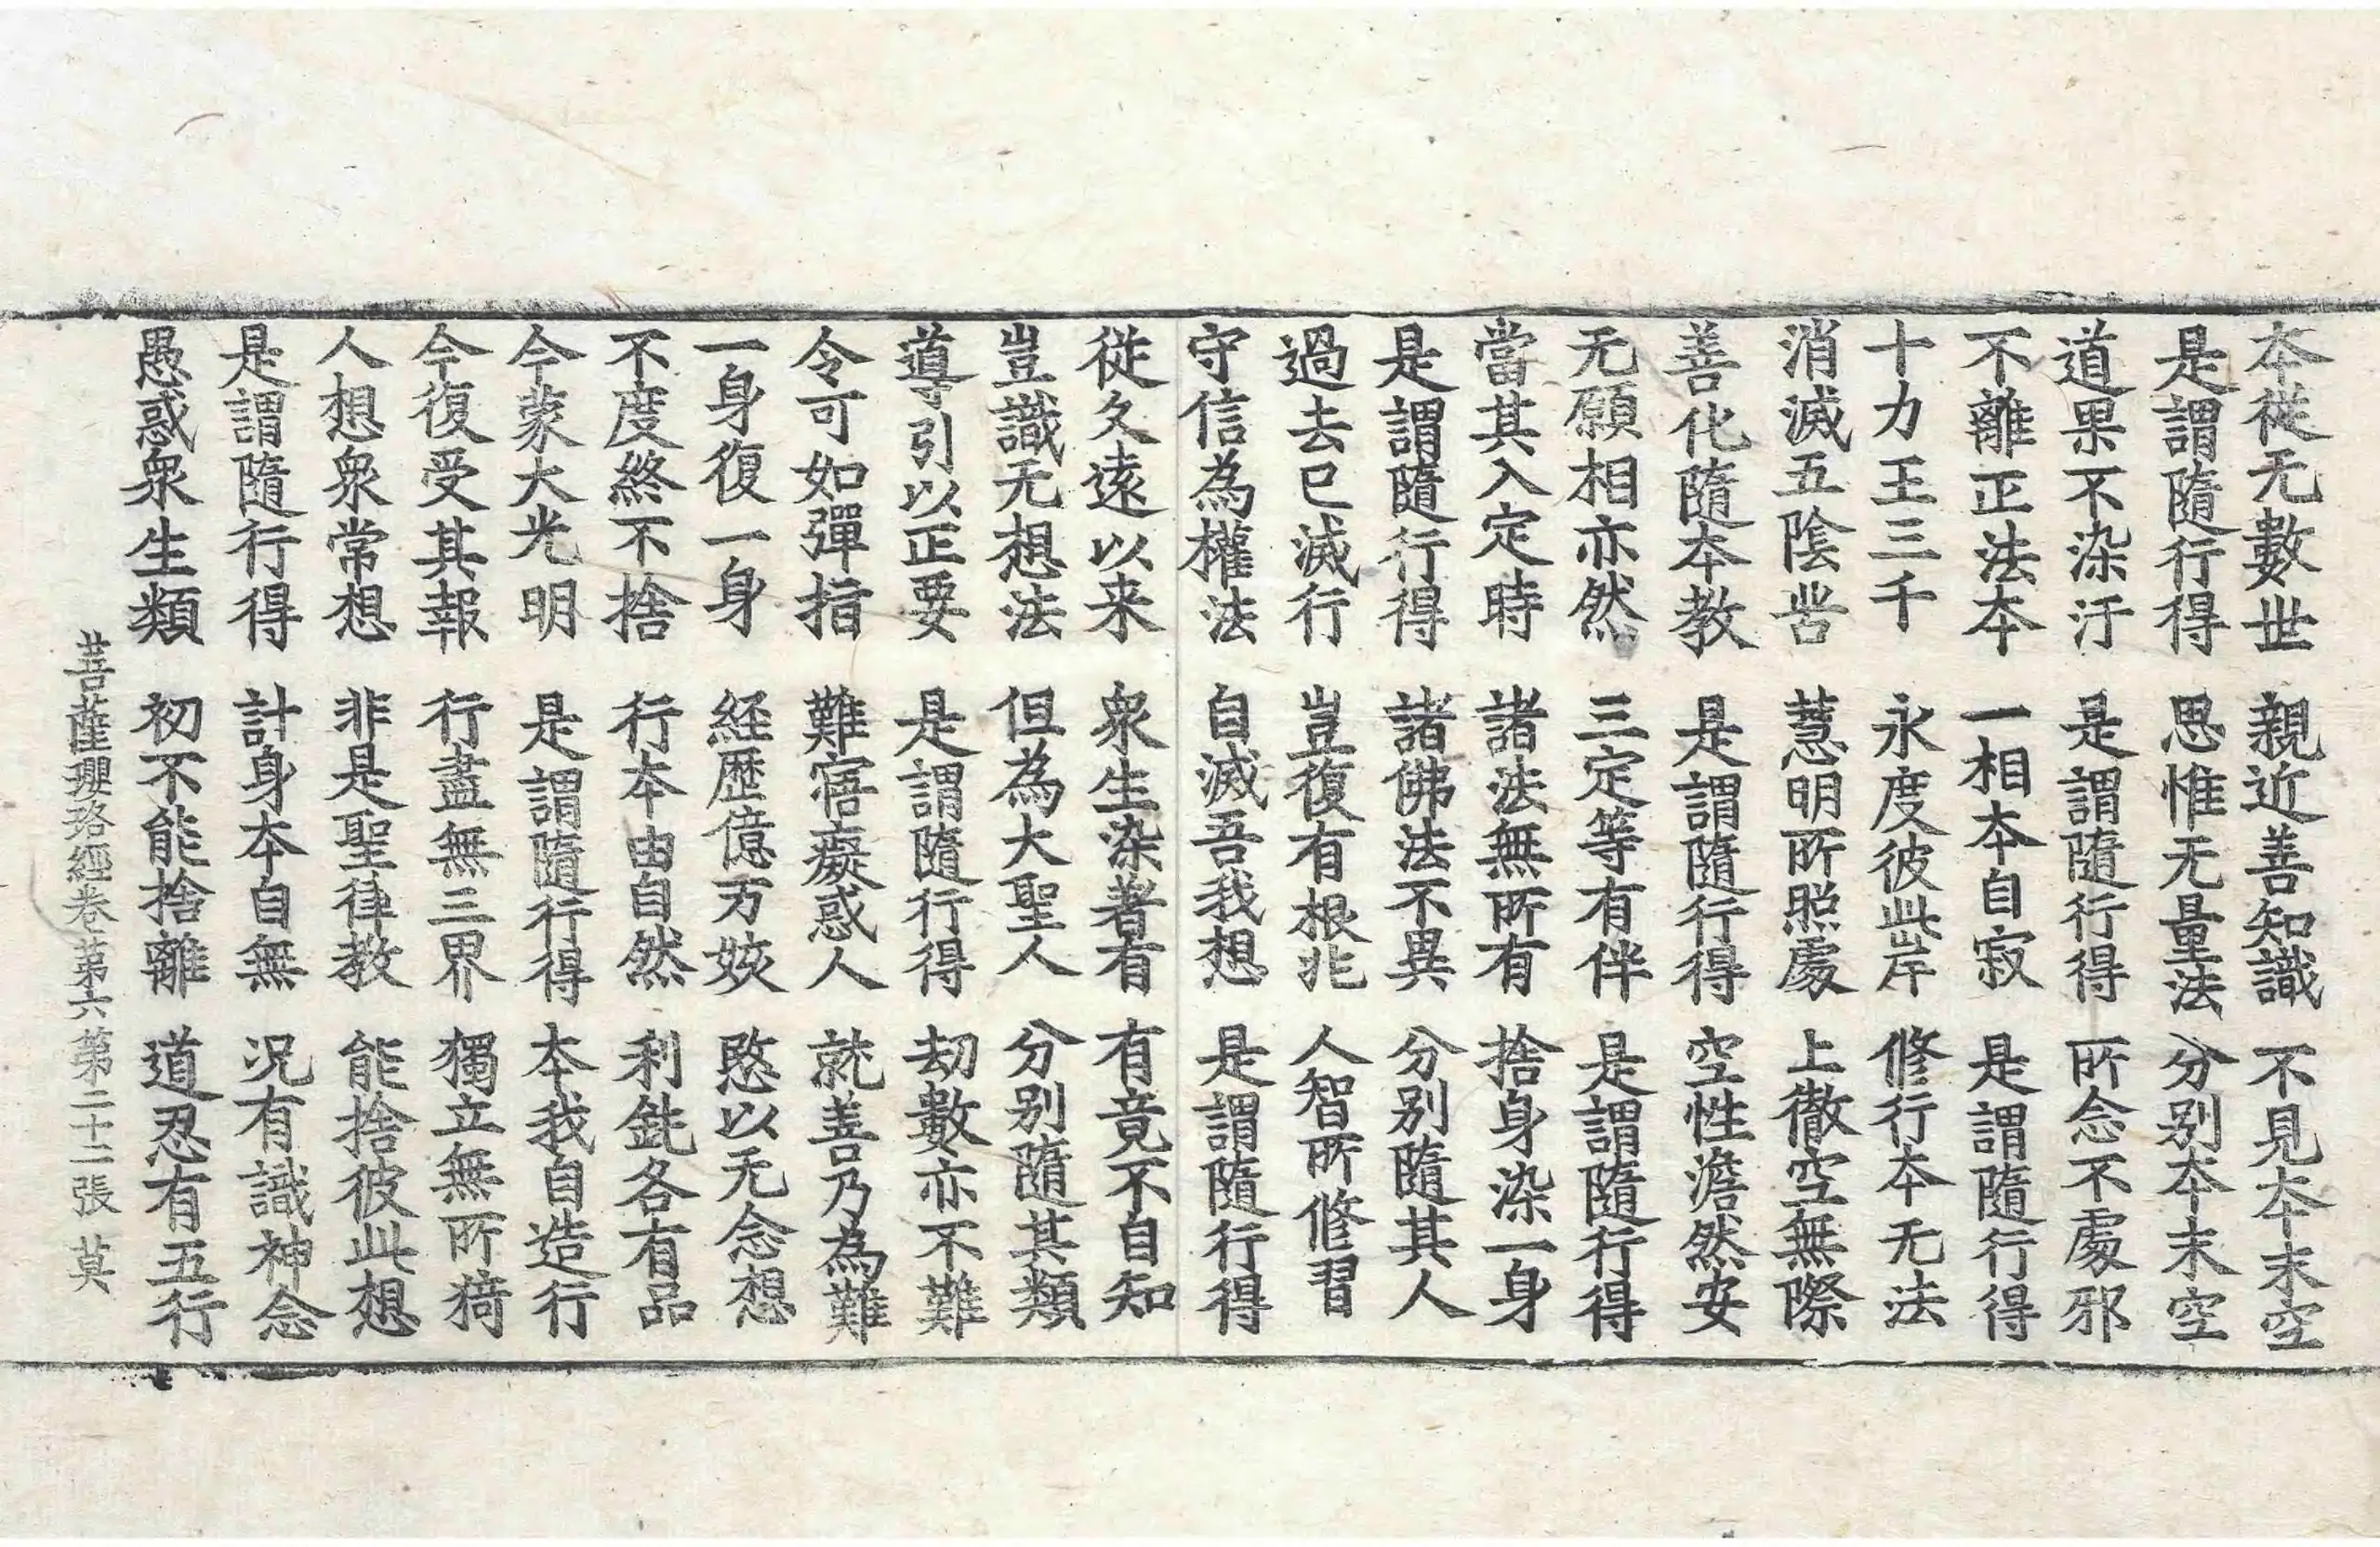 本從无數世 親近善知識 不見本末空
是謂隨行得 思惟无量法 分別本末空
道果不染汙 是謂隨行得 所念不處邪
不離正法本 一相本自寂 是謂隨行得
十力王三千 永度彼此岸 修行本无法
消滅五陰苦 慧明所照處 上徹空無際
善化隨本教 是謂隨行得 空性澹然安
无願相亦然 三定等有伴 是謂隨行得
當其入定時 諸法無所有 捨身染一身
是謂隨行得 諸佛法不異 分別隨其人
過去已滅行 豈復有根兆 人智所修習
守信為權法 自滅吾我想 是謂隨行得
從久遠以来 衆生染著有 有竟不自知
豈識无想法 但為大聖人 分別隨其類
導引以正要 是謂隨行得 劫數亦不難
令可如彈指 難寤癡惑人 就善乃為難
一身復一身 経歷億万姟 愍以无念想
不度終不捨 行本由自然 利鈍各有品
今蒙大光明 是謂隨行得 本我自造行
今復受其報 行盡無三界 獨立無所猗
人想衆常想 非是聖律教 能捨彼此想
是謂隨行得 計身本自無 況有識神念
愚惑衆生類 初不能捨離 道忍有五行
菩薩瓔珞經卷第六 第二十二張 莫